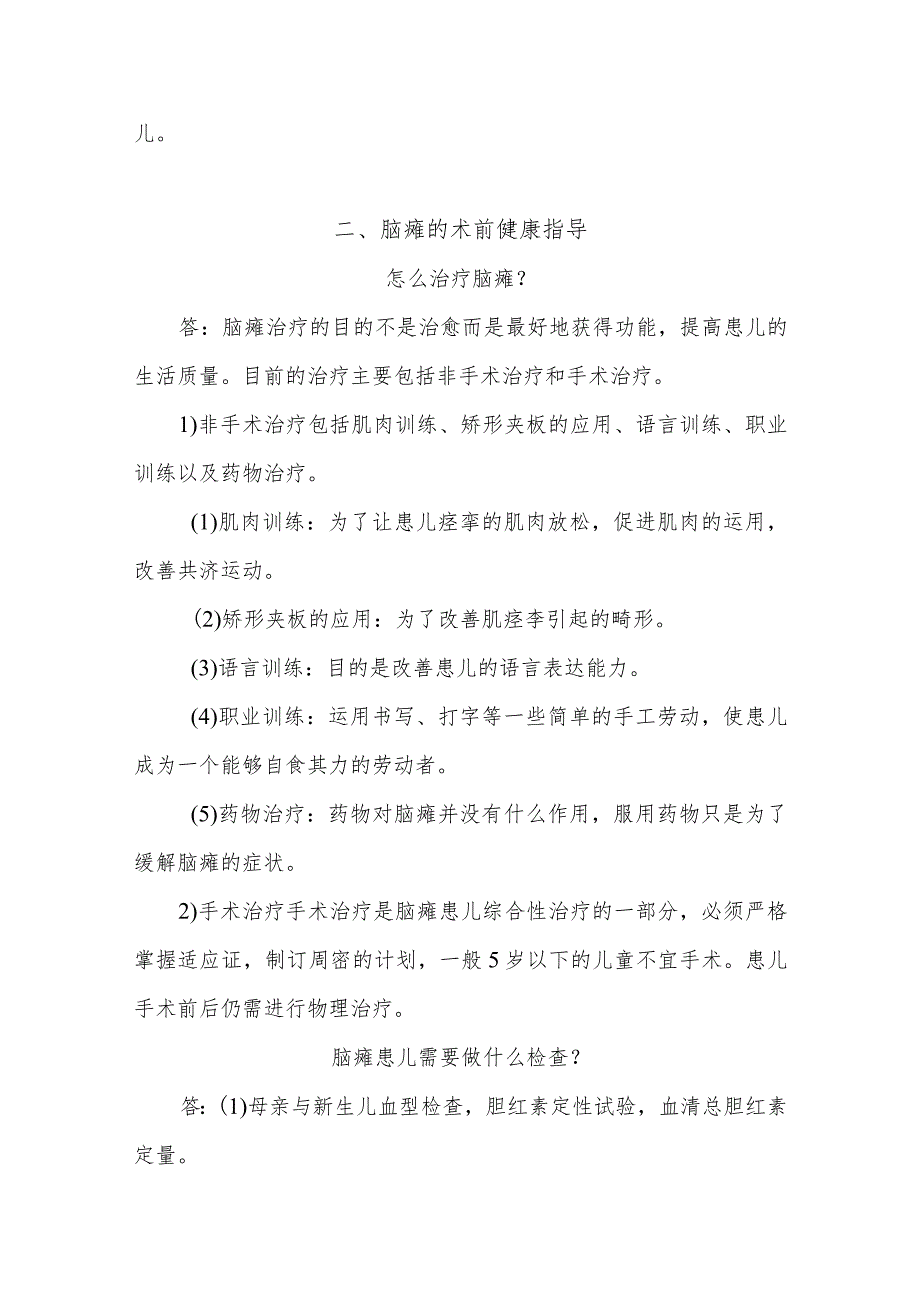 儿。
二、脑瘫的术前健康指导
怎么治疗脑瘫？
答：脑瘫治疗的目的不是治愈而是最好地获得功能，提高患儿的
生活质量。目前的治疗主要包括非手术治疗和手术治疗。
1)非手术治疗包括肌肉训练、矫形夹板的应用、语言训练、职业
训练以及药物治疗。
(1)肌肉训练：为了让患儿痉挛的肌肉放松，促进肌肉的运用，
改善共济运动。
（2)矫形夹板的应用：为了改善肌痉李引起的畸形。
(3)语言训练：目的是改善患儿的语言表达能力。
(4)职业训练：运用书写、打字等一些简单的手工劳动，使患儿
成为一个能够自食其力的劳动者。
(5)药物治疗：药物对脑瘫并没有什么作用，服用药物只是为了
缓解脑瘫的症状。
2)手术治疗手术治疗是脑瘫患儿综合性治疗的一部分，必须严格
掌握适应证，制订周密的计划，一般5岁以下的儿童不宜手术。患儿
手术前后仍需进行物理治疗。
脑瘫患儿需要做什么检查？
答：（1)母亲与新生儿血型检查，胆红素定性试验，血清总胆红素
定量。